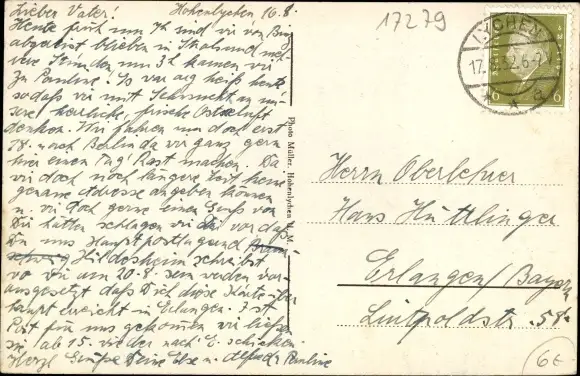 Lieber Vater! Hohenlychen 16.8.
Heute früh um 7h sind wir von
abgereist blieben in Stralsund
Stunden um 3h kamen wir
zu Pauline! Es war arg heiß heute
sodaß wir mit Sehnsucht an
sere herrliche, frische Ostseeluft
denken. Wir fahren nun doch erst
18. nach Berlin da wir ganz gern
hier einen Tag Rast machen. Da
wir doch noch längere Zeit keine
genaue Adresse angeben können
u. wir doch gerne einen Gruß von
Dir hätten schlagen wir vor daß
Du uns Hauptpostlagernd
Hildesheim schreibst
wo wir am 20.8. sein werden vor-
ausgesetzt daß Dich diese Karte über-
haupt erreicht in Erlangen. Ist
Post für uns gekommen wir ließen
sie ab 15. wieder nach E. schicken.
Herzl. Grüße Deine Else u. Alfred u. Pauline
Photo Müller, Hohenlychen U.-M.
17279
LYCHEN
17.8.32.6-7V
* * a
6 6
Herrn Oberlehrer
Hans Hüttlinger
Erlangen/Bayern
Luitpoldstr.
6€